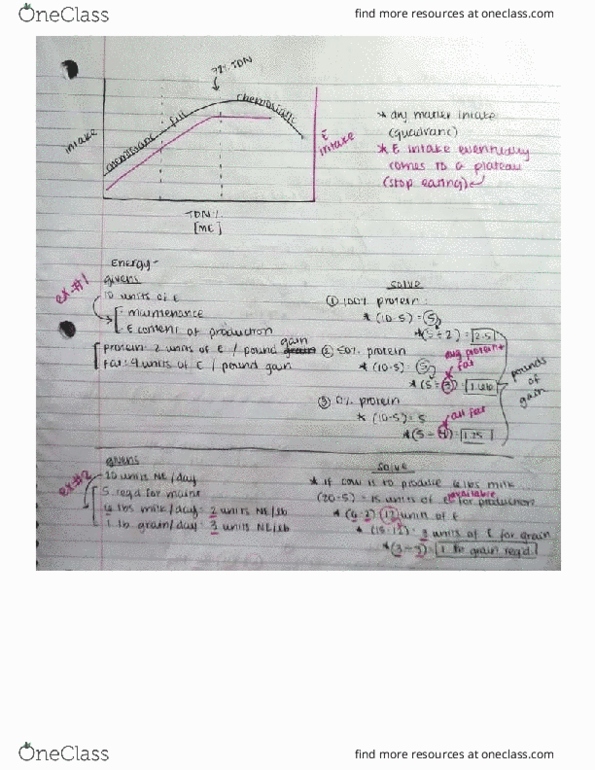 OneClass
find more resources at oneclass.com
78% TDN
fill
chemostatic
intake
E intake
TDN%
[ME]
* dry matter intake
(quadratic)
* E intake eventually
comes to a plateau
(stop eating)
Energy-
ex.#1
givens
10 units of E
- maintenance
- E content of production
protein: 2 units of E / pound gain
fat: 4 units of E / pound gain
solve
① 100% protein:
* (10-5) = 5
* (5÷2) = 2.5
② 50% protein
avg protein + fat
* (10-5) = 5
* (5÷3) = 1.66
③ 0% protein
* (10-5) = 5
all fat
* (5÷4) = 1.25
pounds of gain
ex.#2
givens
20 units NE/day
5 req'd for maint
6 lbs milk/day: 2 units NE/lb
1 lb grain/day: 3 units NE/lb
solve
* if cow is to produce 6 lbs milk
(20-5) = 15 units of E available for production
* (6·2) = 12 units of E
* (15-12) = 3 units of E for grain
* (3÷3) = 1 lb grain req'd
OneClass
find more resources at oneclass.com